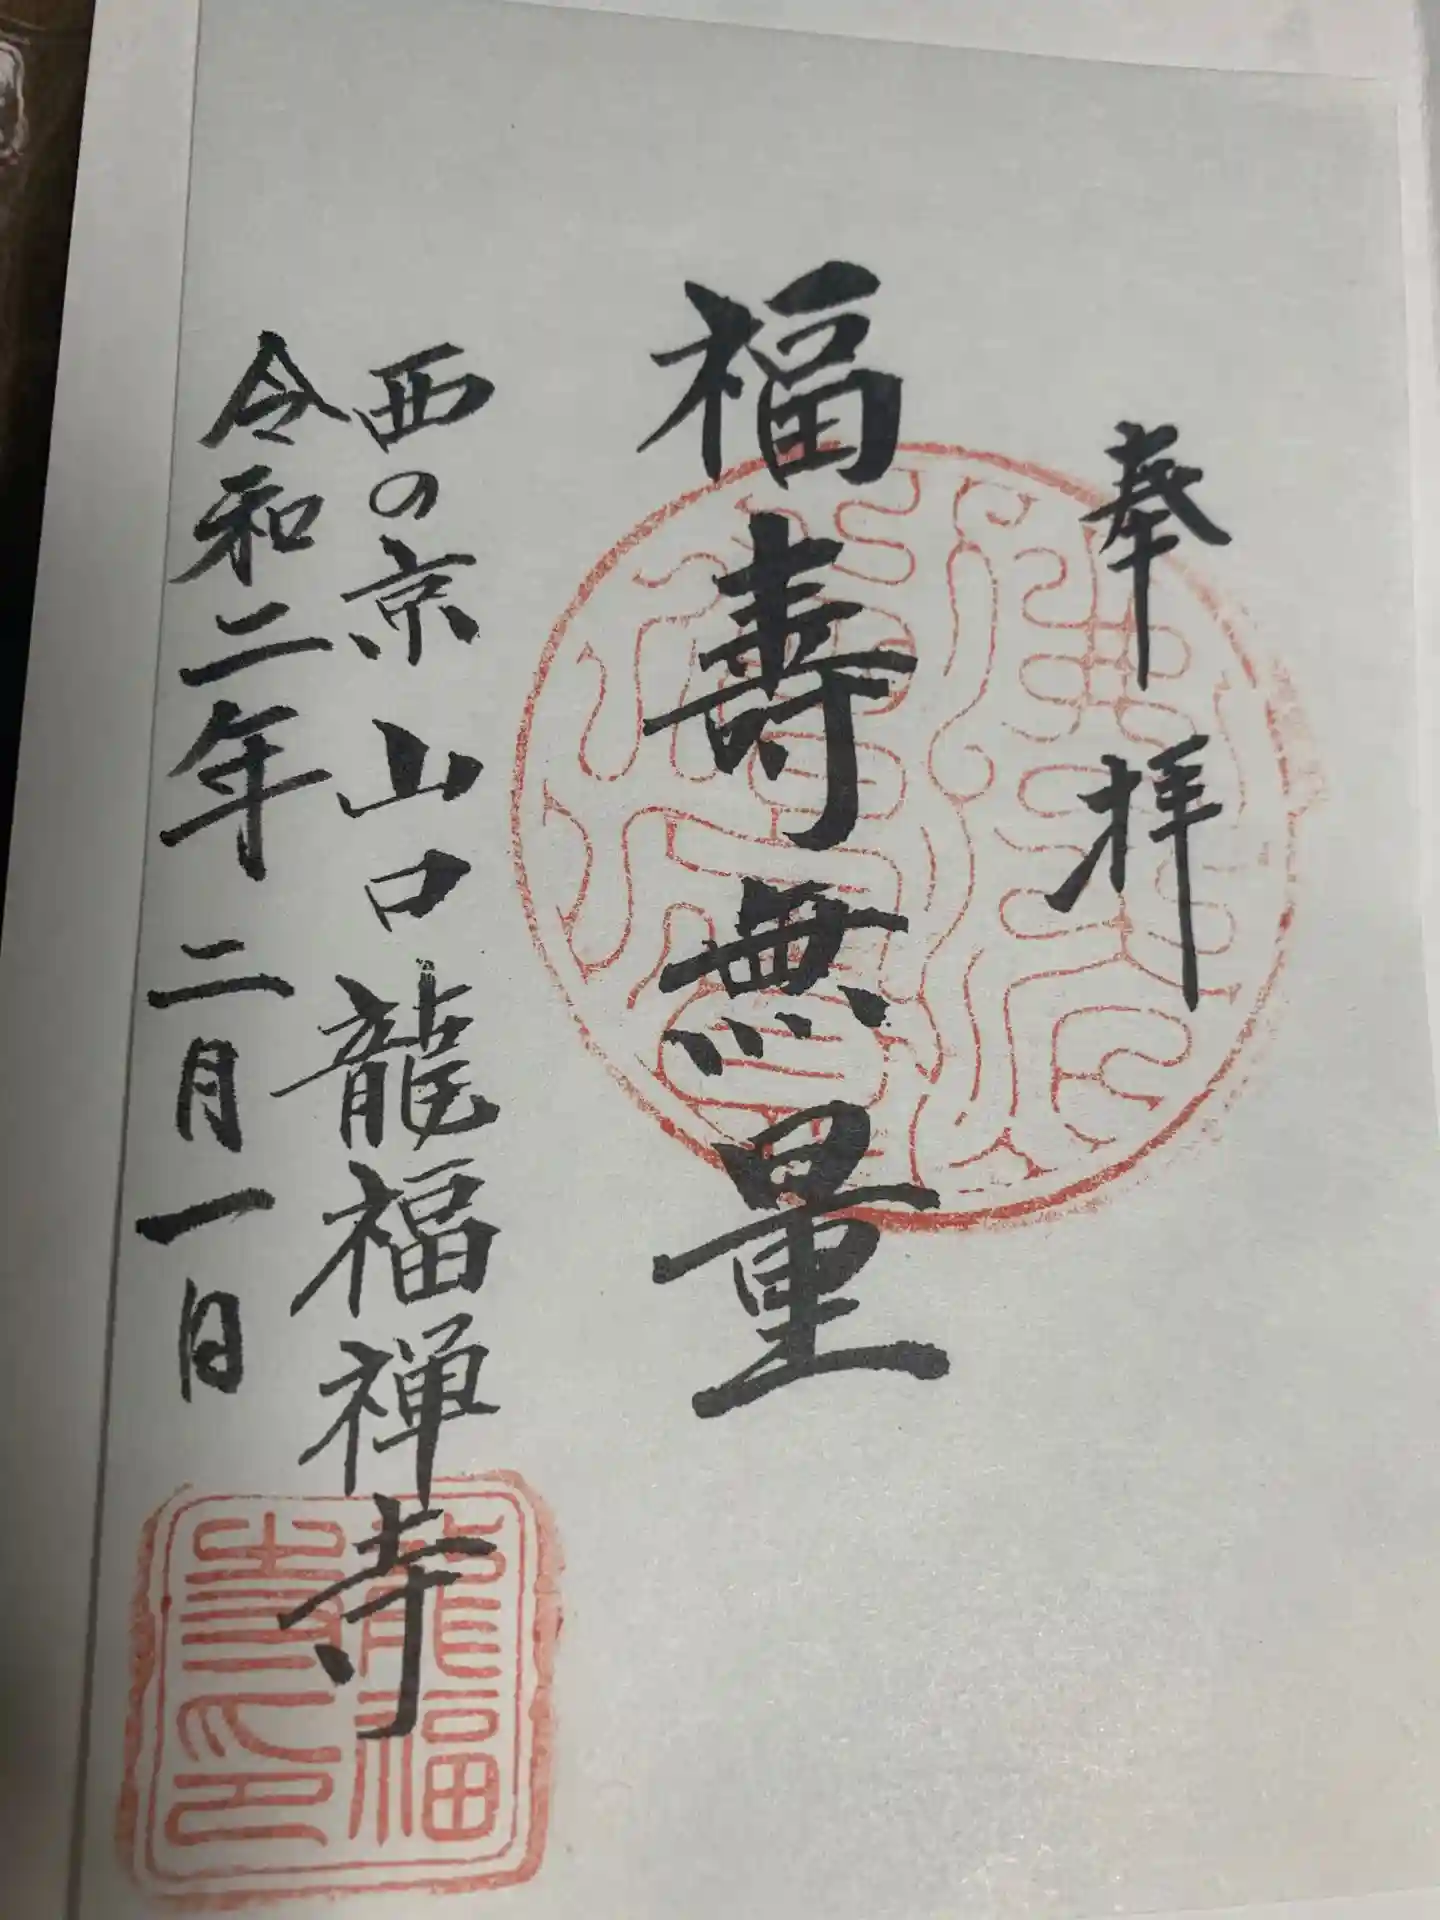 奉拝
福寿無量
西の京山口龍福禅寺
令和二年二月一日
龍福
寺印